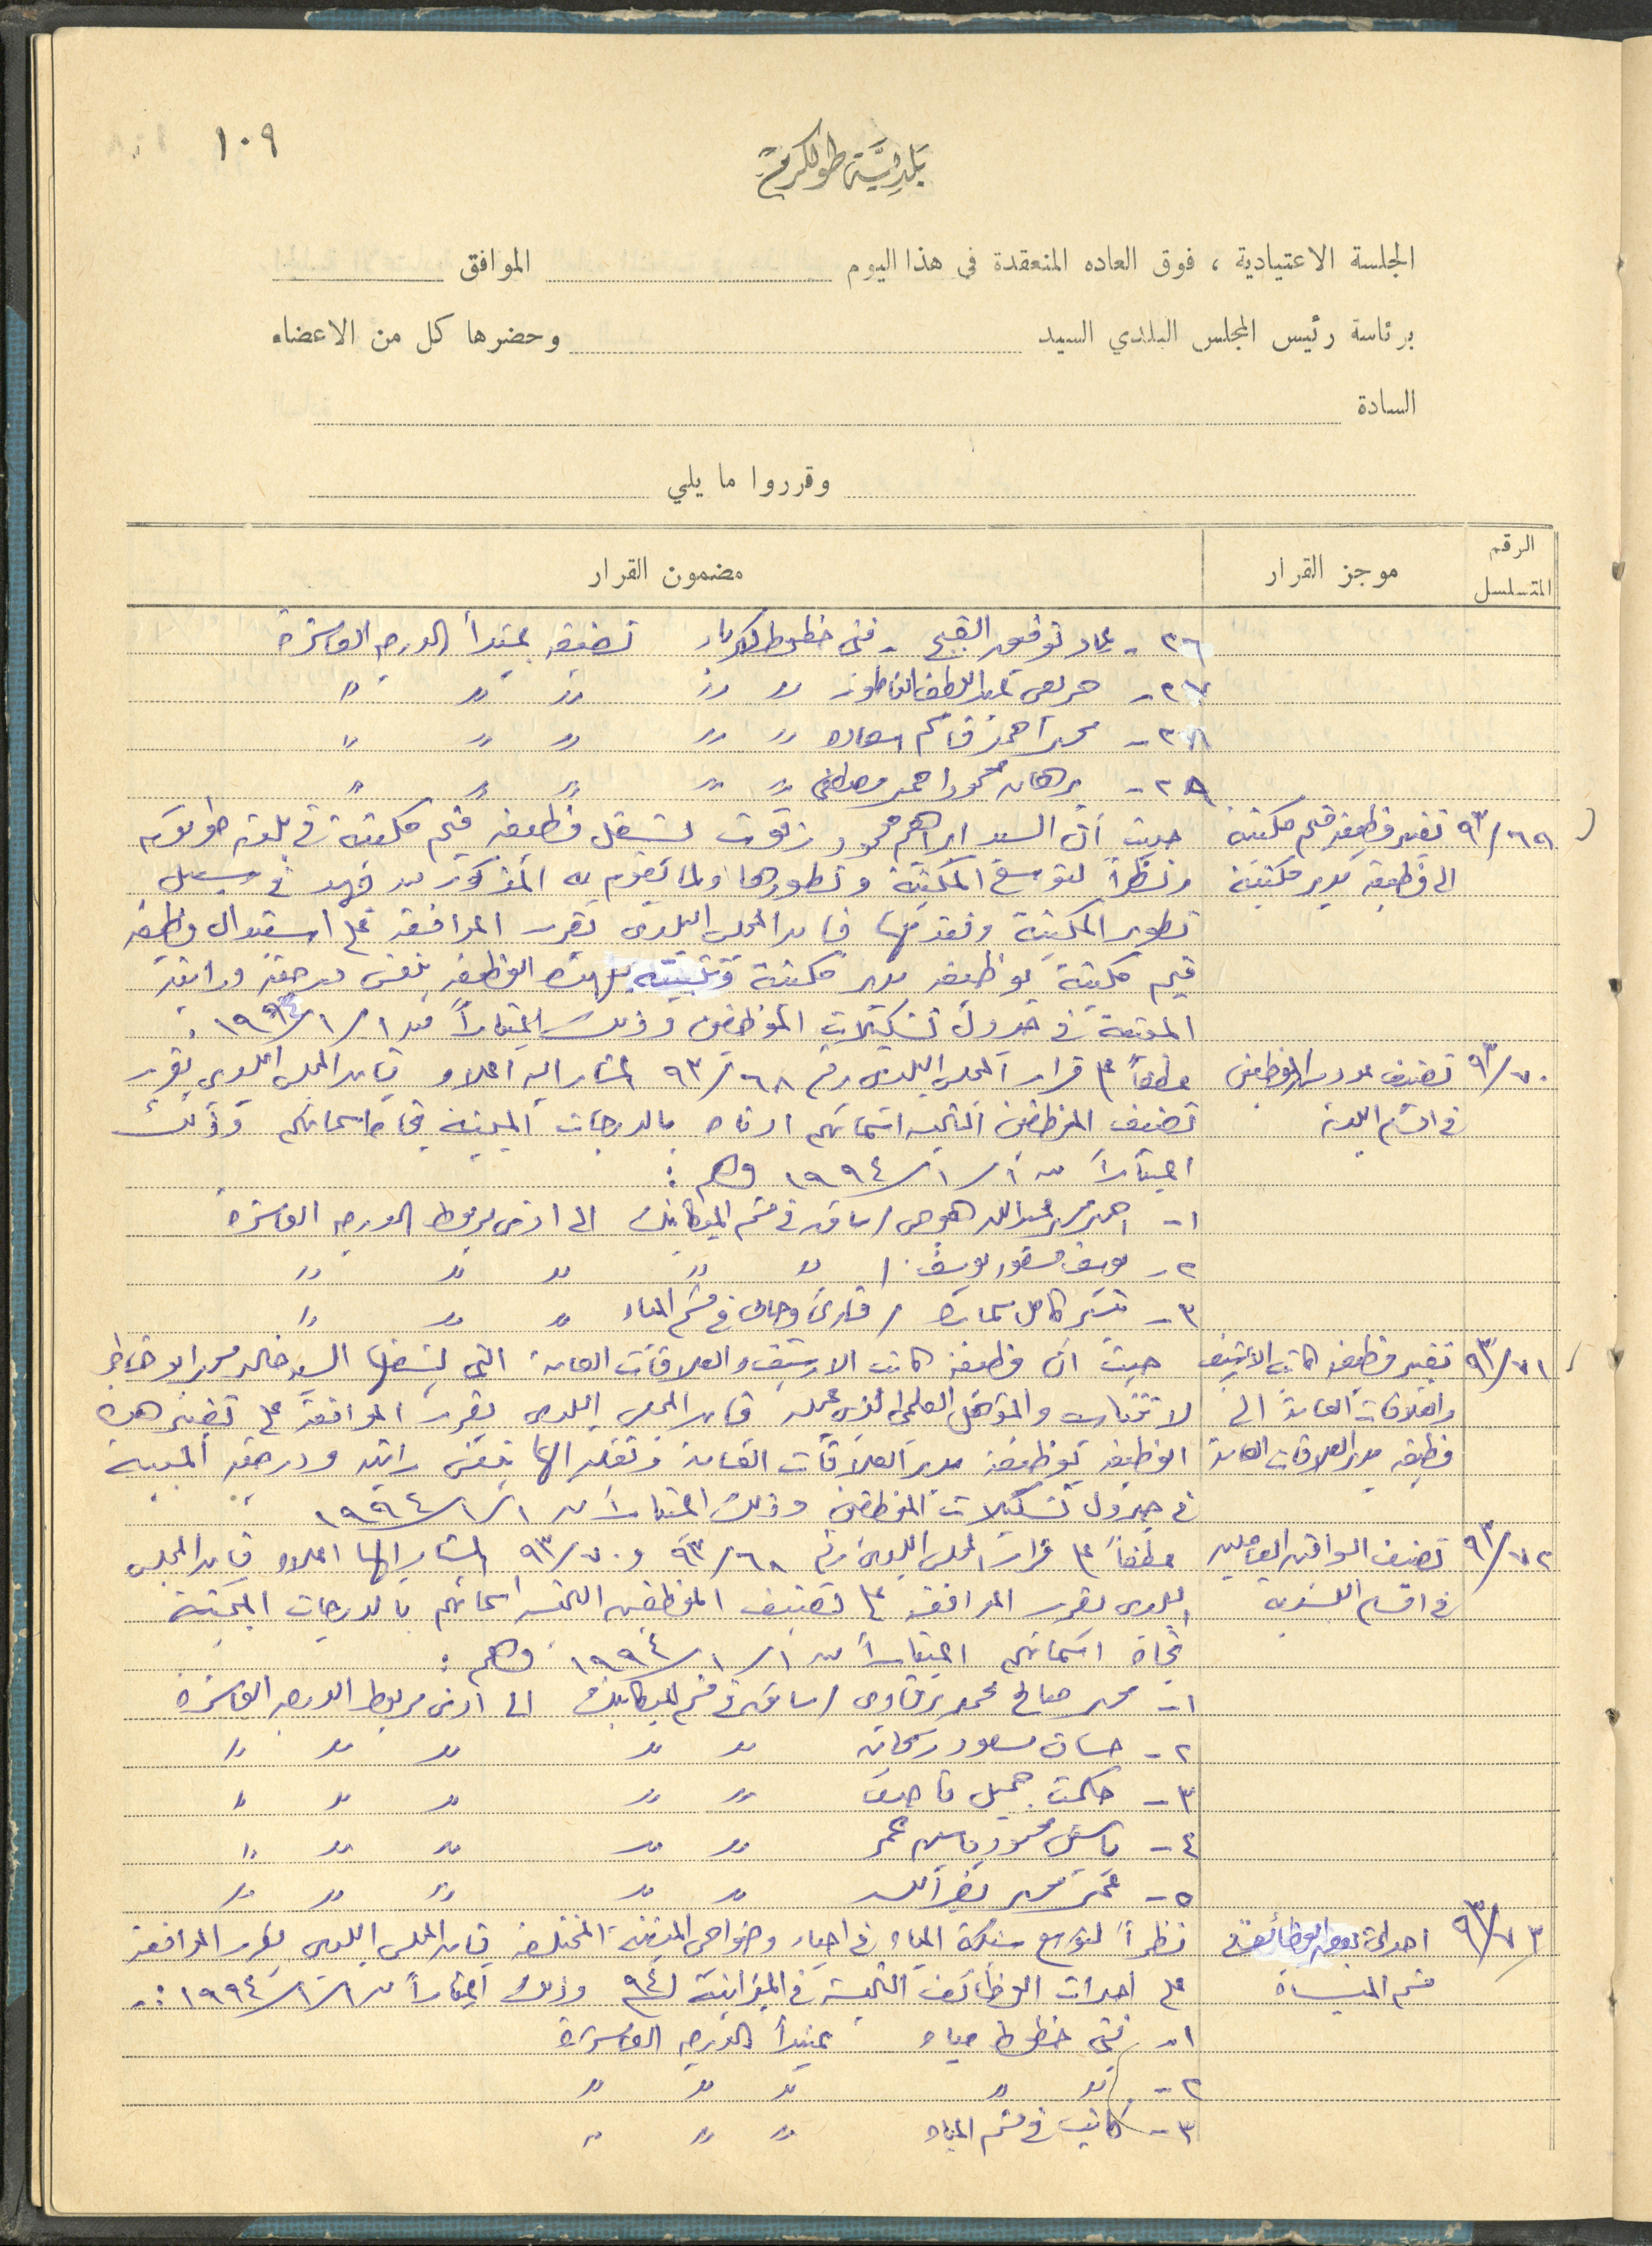 ١٠٩
بلدية طولكرم
الجلسة الاعتيادية ، فوق العاده المنعقدة في هذا اليوم الموافق
برئاسة رئيس المجلس البلدي السيد وحضرها كل من الاعضاء
السادة
وقرروا ما يلي
الرقم المتسلسل موجز القرار مضمون القرار
٢٦ - عماد توفيق القبج - فني خطوط كهرباء تصنيفه بمبتدأ الدرجه العاشرة
٢٧ - عبد اللطيف " " " " "
٢٨ - محمد احمد قاسم " " " " "
٢٩ - برهان محمود احمد مصطفى " " " " "
٩٣/٦٩ تغيير وظيفة قيم مكتبة حيث أن السيد ابراهيم محمود زقوت يشغل وظيفة قيم مكتبة في بلدية طولكرم
الى وظيفة مدير مكتبة ونظراً لتوسع المكتبة وتطورها ولما يقوم به المذكور من جهد في سبيل
تطوير المكتبة وتقدمها فان المجلس البلدي يقرر الموافقة على استبدال وظيفة
قيم مكتبة بوظيفة مدير مكتبة وتثبيته بهذه الوظيفة بنفس درجته وراتبه
المعينة في جدول تشكيلات الموظفين وذلك اعتباراً من ١/١/١٩٩٤ .
٩٣/٧٠ تصنيف عدد من الموظفين عطفاً على قرار المجلس البلدي رقم ٩٣/٦٨ المشار اليه اعلاه فان المجلس البلدي يقرر
في اقسام البلدية تصنيف الموظفين التالية اسمائهم ادناه بالدرجات المبينة تجاه اسمائهم وذلك
اعتباراً من ١/١/١٩٩٤ وهم :
١ - احمد عبد الله / سائق في قسم الميكانيك الى ادنى مربوط الدرجه العاشرة
٢ - يوسف منصور يوسف / " " " " "
٣ - كامل / قارئ وجابي في قسم المياه " " "
٩٣/٧١ تغيير وظيفة كاتب الارشيف حيث ان وظيفة كاتب الارشيف والعلاقات العامة التي يشغلها السيد خالد
والعلاقات العامة الى لا تتناسب والمؤهل العلمي الذي يحمله فان المجلس البلدي يقرر الموافقة على تغيير هذه
وظيفة مدير العلاقات العامة الوظيفة بوظيفة مدير العلاقات العامة ونقله اليها بنفس راتبه ودرجته المبينة
في جدول تشكيلات الموظفين وذلك اعتباراً من ١/١/١٩٩٤
٩٣/٧٢ تصنيف السواقين العاملين عطفاً على قرار المجلس البلدي رقم ٩٣/٦٨ و ٩٣/٧٠ المشار اليها اعلاه فان المجلس
في اقسام البلدية البلدي يقرر الموافقة على تصنيف الموظفين التالية اسمائهم بالدرجات المبينة
تجاه اسمائهم اعتباراً من ١/١/١٩٩٤ وهم :
١ - محمد صالح محمد برقاوي / سائق في قسم الميكانيك الى ادنى مربوط الدرجه العاشرة
٢ - حسان مسعود " " " " "
٣ - حكمت جميل " " " " "
٤ - محمود ياسين عمر " " " " "
٥ - محمد نصر الله " " " " "
٩٣/٧٣ احداث بعض الوظائف في نظراً لتوسع شبكة المياه في احياء وضواحي المدينة المختلفة فان المجلس البلدي يقرر الموافقة
قسم المياه على احداث الوظائف التالية في الميزانية ل ٩٤م وذلك اعتباراً من ١/١/١٩٩٤ :-
١ - فني خطوط مياه بمبتدأ الدرجه العاشرة
٢ - " " " " "
٣ - كاتب في قسم المياه " " "